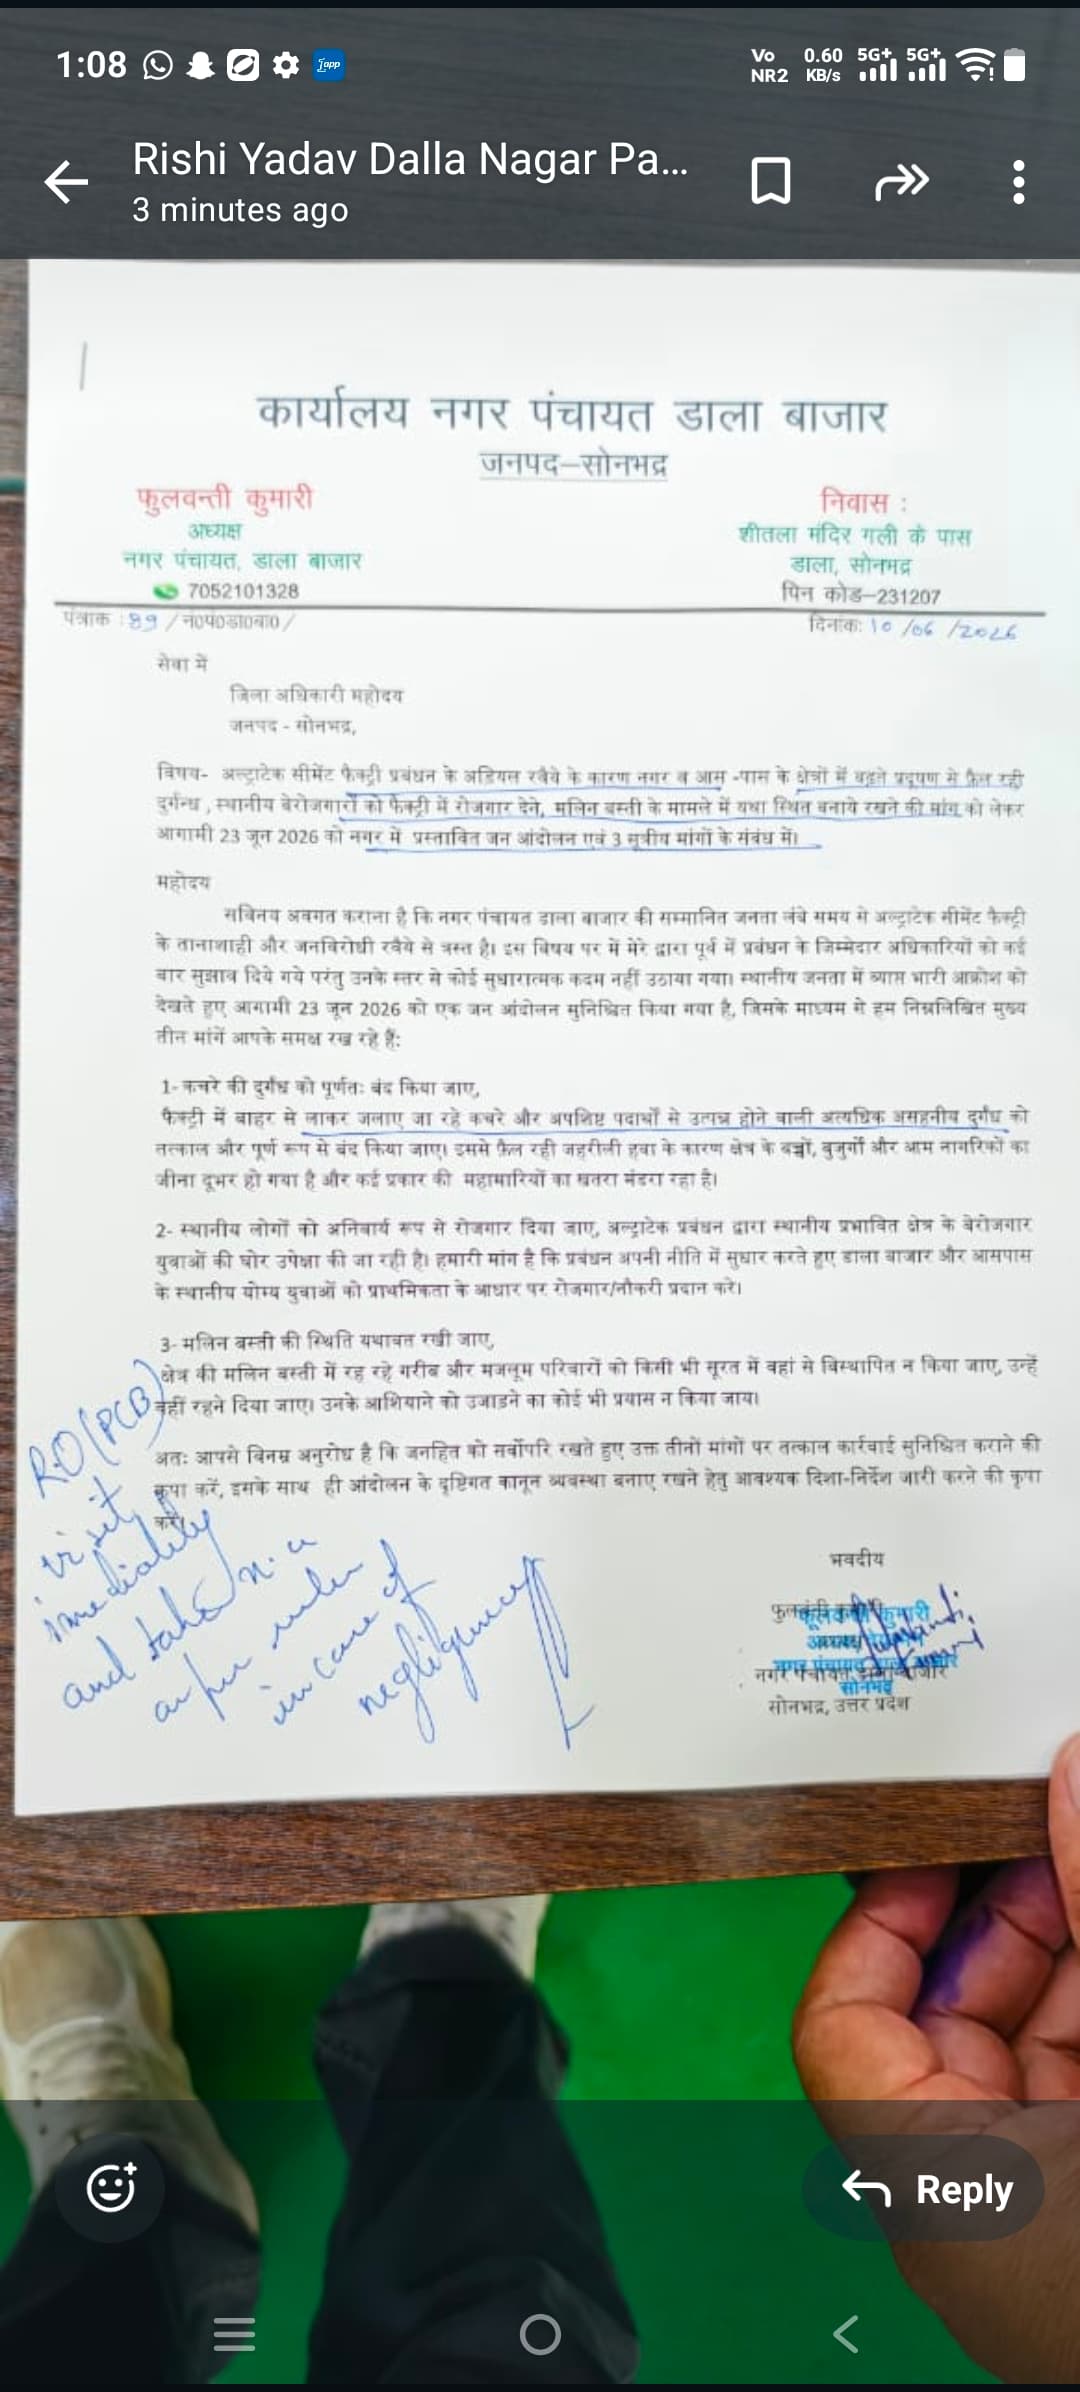 1:08
Vo NR2 0.60 KB/s 5G+ 5G+
Rishi Yadav Dalla Nagar Pa...
3 minutes ago
कार्यालय नगर पंचायत डाला बाजार
जनपद–सोनभद्र
फुलवन्ती कुमारी
अध्यक्ष
नगर पंचायत, डाला बाजार
7052101328
निवास :
शीतला मंदिर गली के पास
डाला, सोनभद्र
पिन कोड–231207
पत्रांक : 89 /न0पं0डा0बा0/
दिनांक: 10 /06 /2026
सेवा में
जिला अधिकारी महोदय
जनपद - सोनभद्र,
विषय- अल्ट्राटेक सीमेंट फैक्ट्री प्रबंधन के अड़ियल रवैये के कारण नगर व आस -पास के क्षेत्रों में बढ़ते प्रदूषण से फ़ैल रही
दुर्गन्ध , स्थानीय बेरोजगारों को फैक्ट्री में रोजगार देने, मलिन बस्ती के मामले में यथा स्थित बनाये रखने की मांग को लेकर
आगामी 23 जून 2026 को नगर में प्रस्तावित जन आंदोलन एवं 3 सूत्रीय मांगों के संबंध में।
महोदय
सविनय अवगत कराना है कि नगर पंचायत डाला बाजार की सम्मानित जनता लंबे समय से अल्ट्राटेक सीमेंट फैक्ट्री
के तानाशाही और जनविरोधी रवैये से त्रस्त है। इस विषय पर में मेरे द्वारा पूर्व में प्रबंधन के जिम्मेदार अधिकारियों को कई
बार सुझाव दिये गये परंतु उनके स्तर से कोई सुधारात्मक कदम नहीं उठाया गया। स्थानीय जनता में व्याप्त भारी आक्रोश को
देखते हुए आगामी 23 जून 2026 को एक जन आंदोलन सुनिश्चित किया गया है, जिसके माध्यम से हम निम्नलिखित मुख्य
तीन मांगें आपके समक्ष रख रहे हैं:
1- कचरे की दुर्गंध को पूर्णतः बंद किया जाए,
फैक्ट्री में बाहर से लाकर जलाए जा रहे कचरे और अपशिष्ट पदार्थों से उत्पन्न होने वाली अत्यधिक असहनीय दुर्गंध को
तत्काल और पूर्ण रूप से बंद किया जाए। इससे फ़ैल रही जहरीली हवा के कारण क्षेत्र के बच्चों, बुजुर्गों और आम नागरिकों का
जीना दूभर हो गया है और कई प्रकार की महामारियों का खतरा मंडरा रहा है।
2- स्थानीय लोगों को अनिवार्य रूप से रोजगार दिया जाए, अल्ट्राटेक प्रबंधन द्वारा स्थानीय प्रभावित क्षेत्र के बेरोजगार
युवाओं की घोर उपेक्षा की जा रही है। हमारी मांग है कि प्रबंधन अपनी नीति में सुधार करते हुए डाला बाजार और आसपास
के स्थानीय योग्य युवाओं को प्राथमिकता के आधार पर रोजगार/नौकरी प्रदान करे।
3- मलिन बस्ती की स्थिति यथावत रखी जाए,
क्षेत्र की मलिन बस्ती में रह रहे गरीब और मजलूम परिवारों को किसी भी सूरत में वहां से विस्थापित न किया जाए, उन्हें
वहीं रहने दिया जाए। उनके आशियाने को उजाड़ने का कोई भी प्रयास न किया जाय।
अतः आपसे विनम्र अनुरोध है कि जनहित को सर्वोपरि रखते हुए उक्त तीनों मांगों पर तत्काल कार्रवाई सुनिश्चित कराने की
कृपा करें, इसके साथ ही आंदोलन के दृष्टिगत कानून व्यवस्था बनाए रखने हेतु आवश्यक दिशा-निर्देश जारी करने की कृपा
करें।
R.O (PCB)
visit
immediately
and take n.a
as per rules
in case of
negligence
भवदीय
फूलवन्ती कुमारी
अध्यक्ष
नगर पंचायत डाला बाजार
सोनभद्र
सोनभद्र, उत्तर प्रदेश
Reply